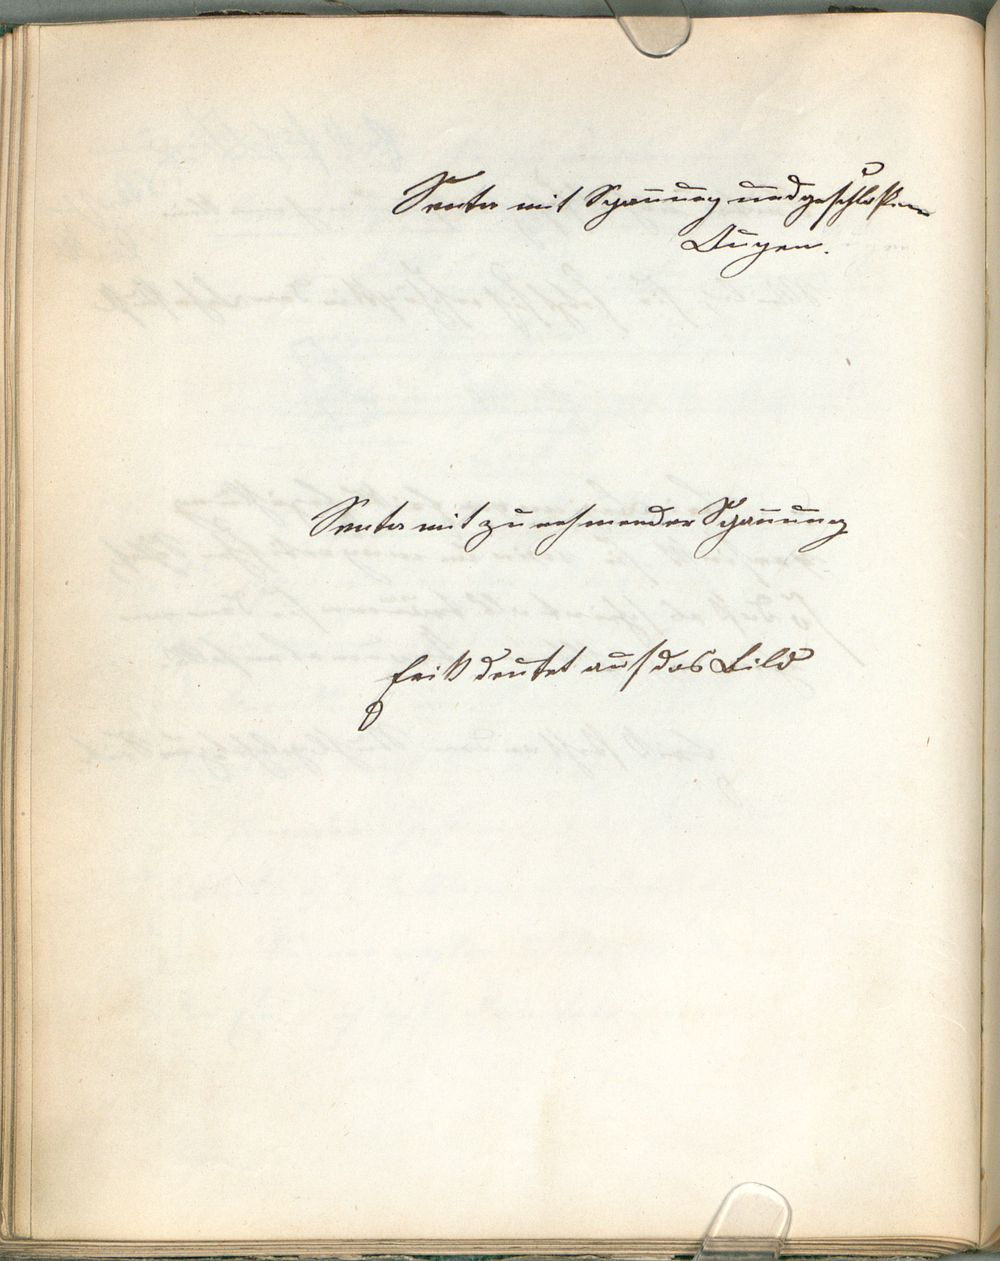 Senta mit Spannung und geschloßenen
Augen.
Senta mit zunehmender Spannung
Erik deutet auf das Bild